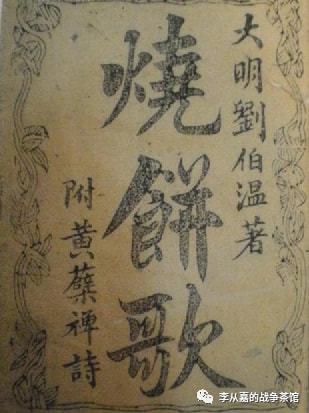 大明劉伯溫著
燒餅歌
附黃蘗禪詩
李从嘉的战争茶馆